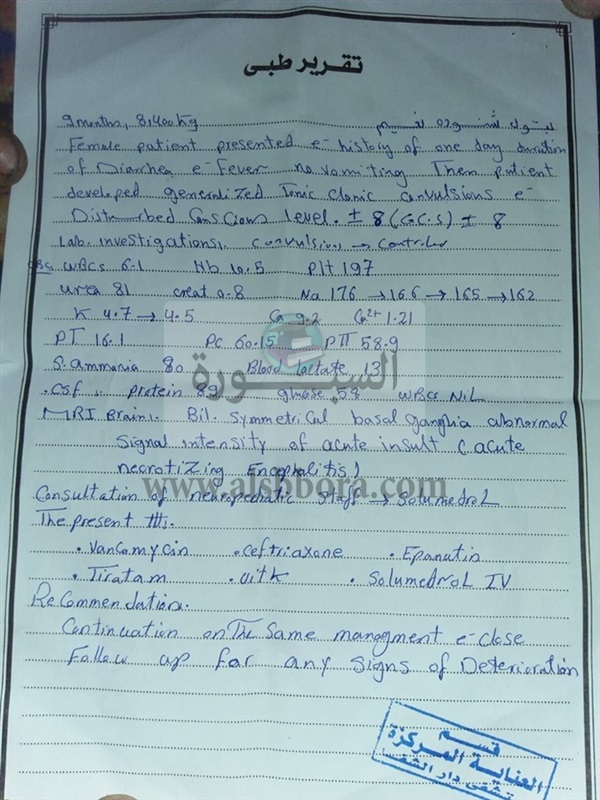 تقرير طبى
9 months, 8,400 Kg
Female patient presented e- history of one day duration
of Diarrhea e- Fever no vomiting Then patient
developed generalized Tonic Clonic convulsions e-
Disturbed Conscious level. ± 8 (G.C.S) ± 8
Lab. investigations: convulsions → Controlled
CBC WBCs 6.1 Hb 10.5 Plt 197
urea 81 creat 0.8 Na 176 → 166 → 165 → 162
K 4.7 → 4.5 Ca 9.2 Ca²⁺ 1.21
PT 16.1 Pc 60.15 PTT 58.9
S. ammonia 80 Blood lactate 13
السبورة
CSF: protein 89 glucose 58 WBCs NiL
MRI Brain: Bil. Symmetrical basal ganglia abnormal
Signal intensity of acute insult C acute
necrotizing Encephalitis)
www.alshbora.com
Consultation of neuropediatric Staff → Solumedrol
The present ttt.
• Vancomycin • Ceftriaxone • Epanutin
• Tiratam • vit K • Solumedrol IV
Recommendation.
Continuation on The Same managment e- close
Follow up for any signs of Deterioration
قسم
العناية المركزة